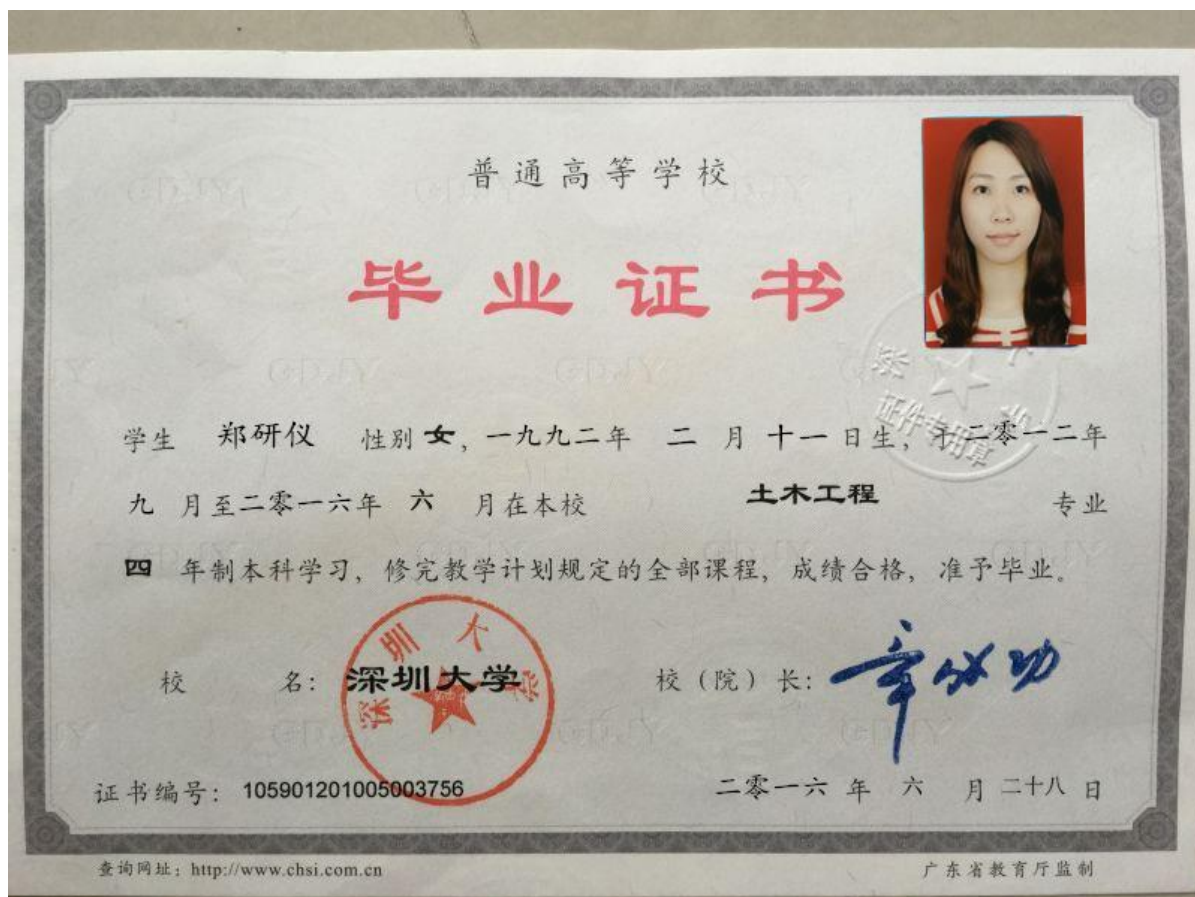 普通高等学校
毕业证书
学生 郑研仪 性别 女, 一九九二年 二 月 十一 日生, 于二零一二年
九 月至二零一六年 六 月在本校 土木工程 专业
四 年制本科学习, 修完教学计划规定的全部课程, 成绩合格, 准予毕业。
校 名: 深圳大学 校(院)长: 章必功
深圳大学
证件专用章
证书编号: 105901201005003756 二零一六 年 六 月 二十八 日
查询网址: http://www.chsi.com.cn 广东省教育厅监制